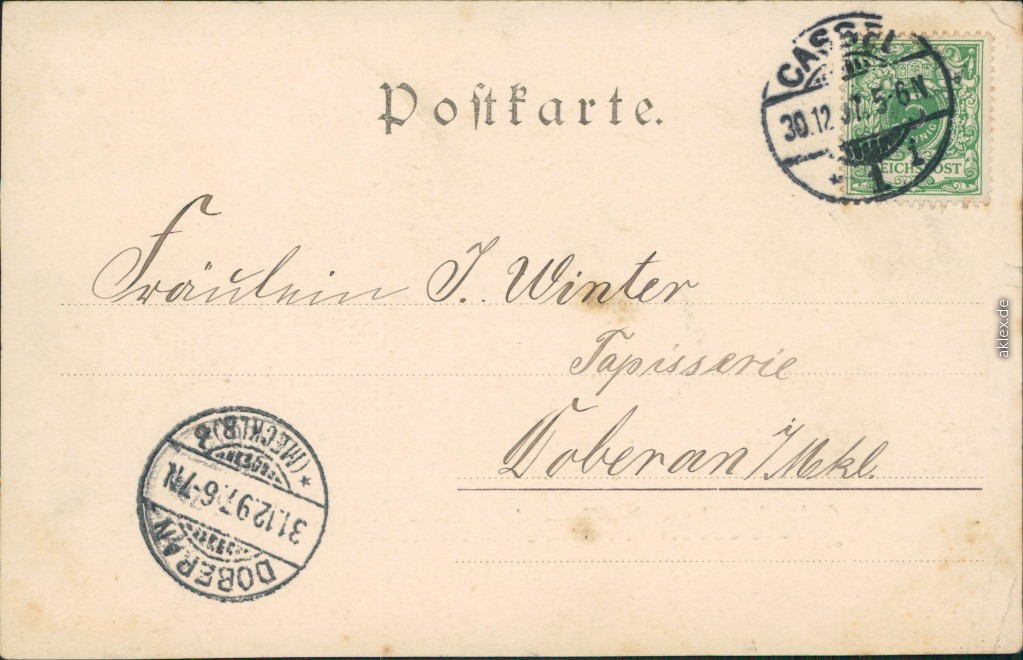 Postkarte.
CASSEL
30.12.97. 5-6.N
* 1 i
REICHSPOST
Fräulein J. Winter
Tapisserie
Doberan i/Mkl.
DOBERAN
31.12.97. 6-7N
* (MECKLB)
aklex.de